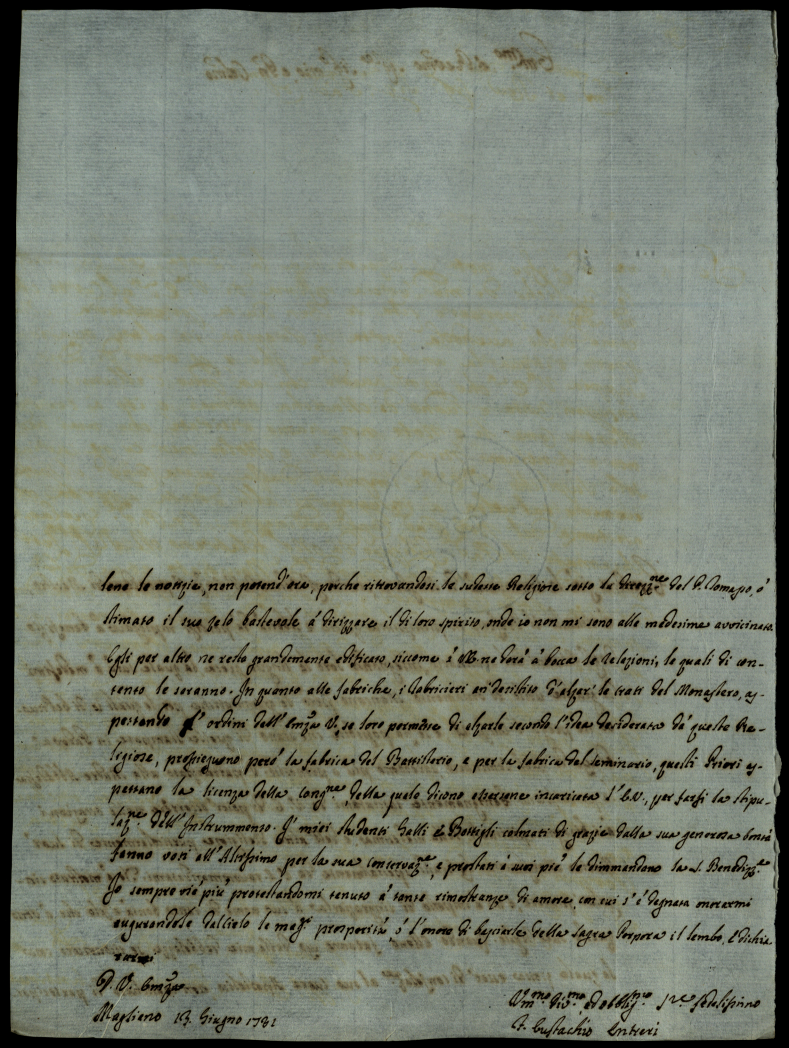 lene le notizie, non potend'ora, perche ritrovandosi le sudette Religiose sotto la direzz.ne del P. Tomasso, ò
stimato il suo zelo bastevole à dirizzare il di loro spirito, onde io non mi sono alle medesime avvicinato.
Egli per altro ne resta grandemente edificato, siccome à V. E. ne darà à bocca le relazioni, le quali di con-
tento le saranno. In quanto alle fabriche, i fabricieri an desistito d'alzar' le grati del Monastero, as-
pettando l'ordini dell'Emza V. se loro permette di alzarle secondo l'idea desiderata dà queste Re-
ligiose, prosieguono però la fabrica del Battisterio, e per la fabrica del seminario, questi Priori as-
pettano la licenza della Cong.ne, della quale dicono esserene incaricata l'E. V., per farsi la stipu-
laz.ne dell'Instrummento. I miei studenti Galli e Bottigli colmati di grazie dalla sua generosa bontà
fanno voti all'Altissimo per la sua conservaz.ne, e prostrati à suoi piè le dimmandono la S. Benediz.ne
Io sempre viè più protestandomi tenuto à tante rimostranze di amore con cui s'è degnata onorarmi
augurandole dal Cielo le mag.ri prosperità, ò l'onore di basciarle della sagra Porpora il lembo, e dichia
rarmi
D. V. Emza
Magliano 13. Giugno 1781
Um.mo Div.mo ed obblig.mo S.re fedelissimo
F. Eustachio Intrieri